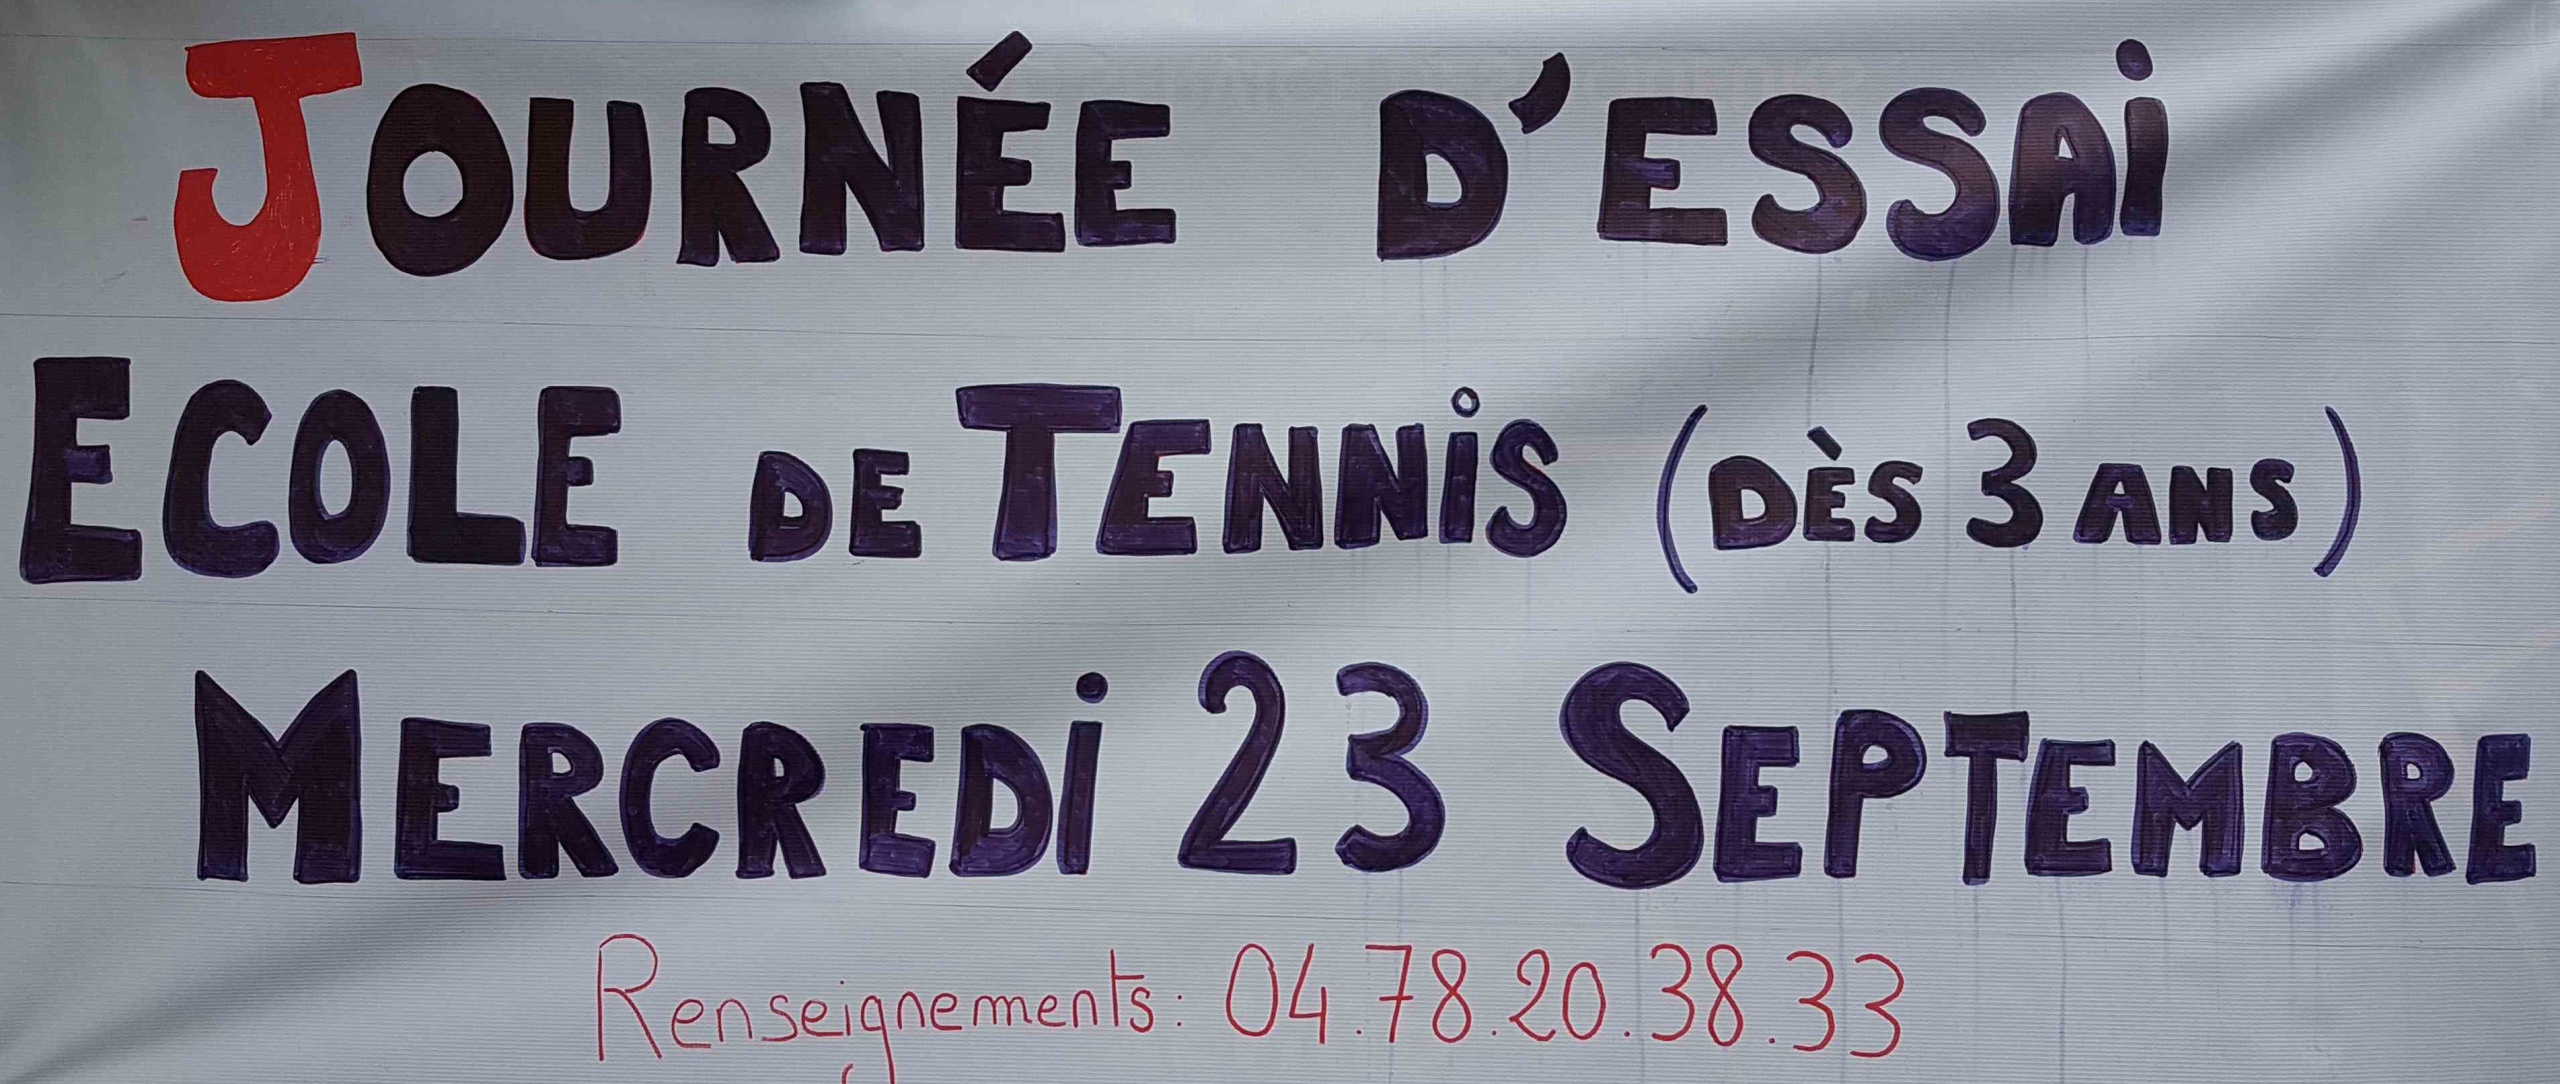 JOURNÉE D'ESSAi
ECOLE DE TENNiS (DÈS 3 ANS)
MERCREDi 23 SEPTEMBRE
Renseignements: 04.78.20.38.33